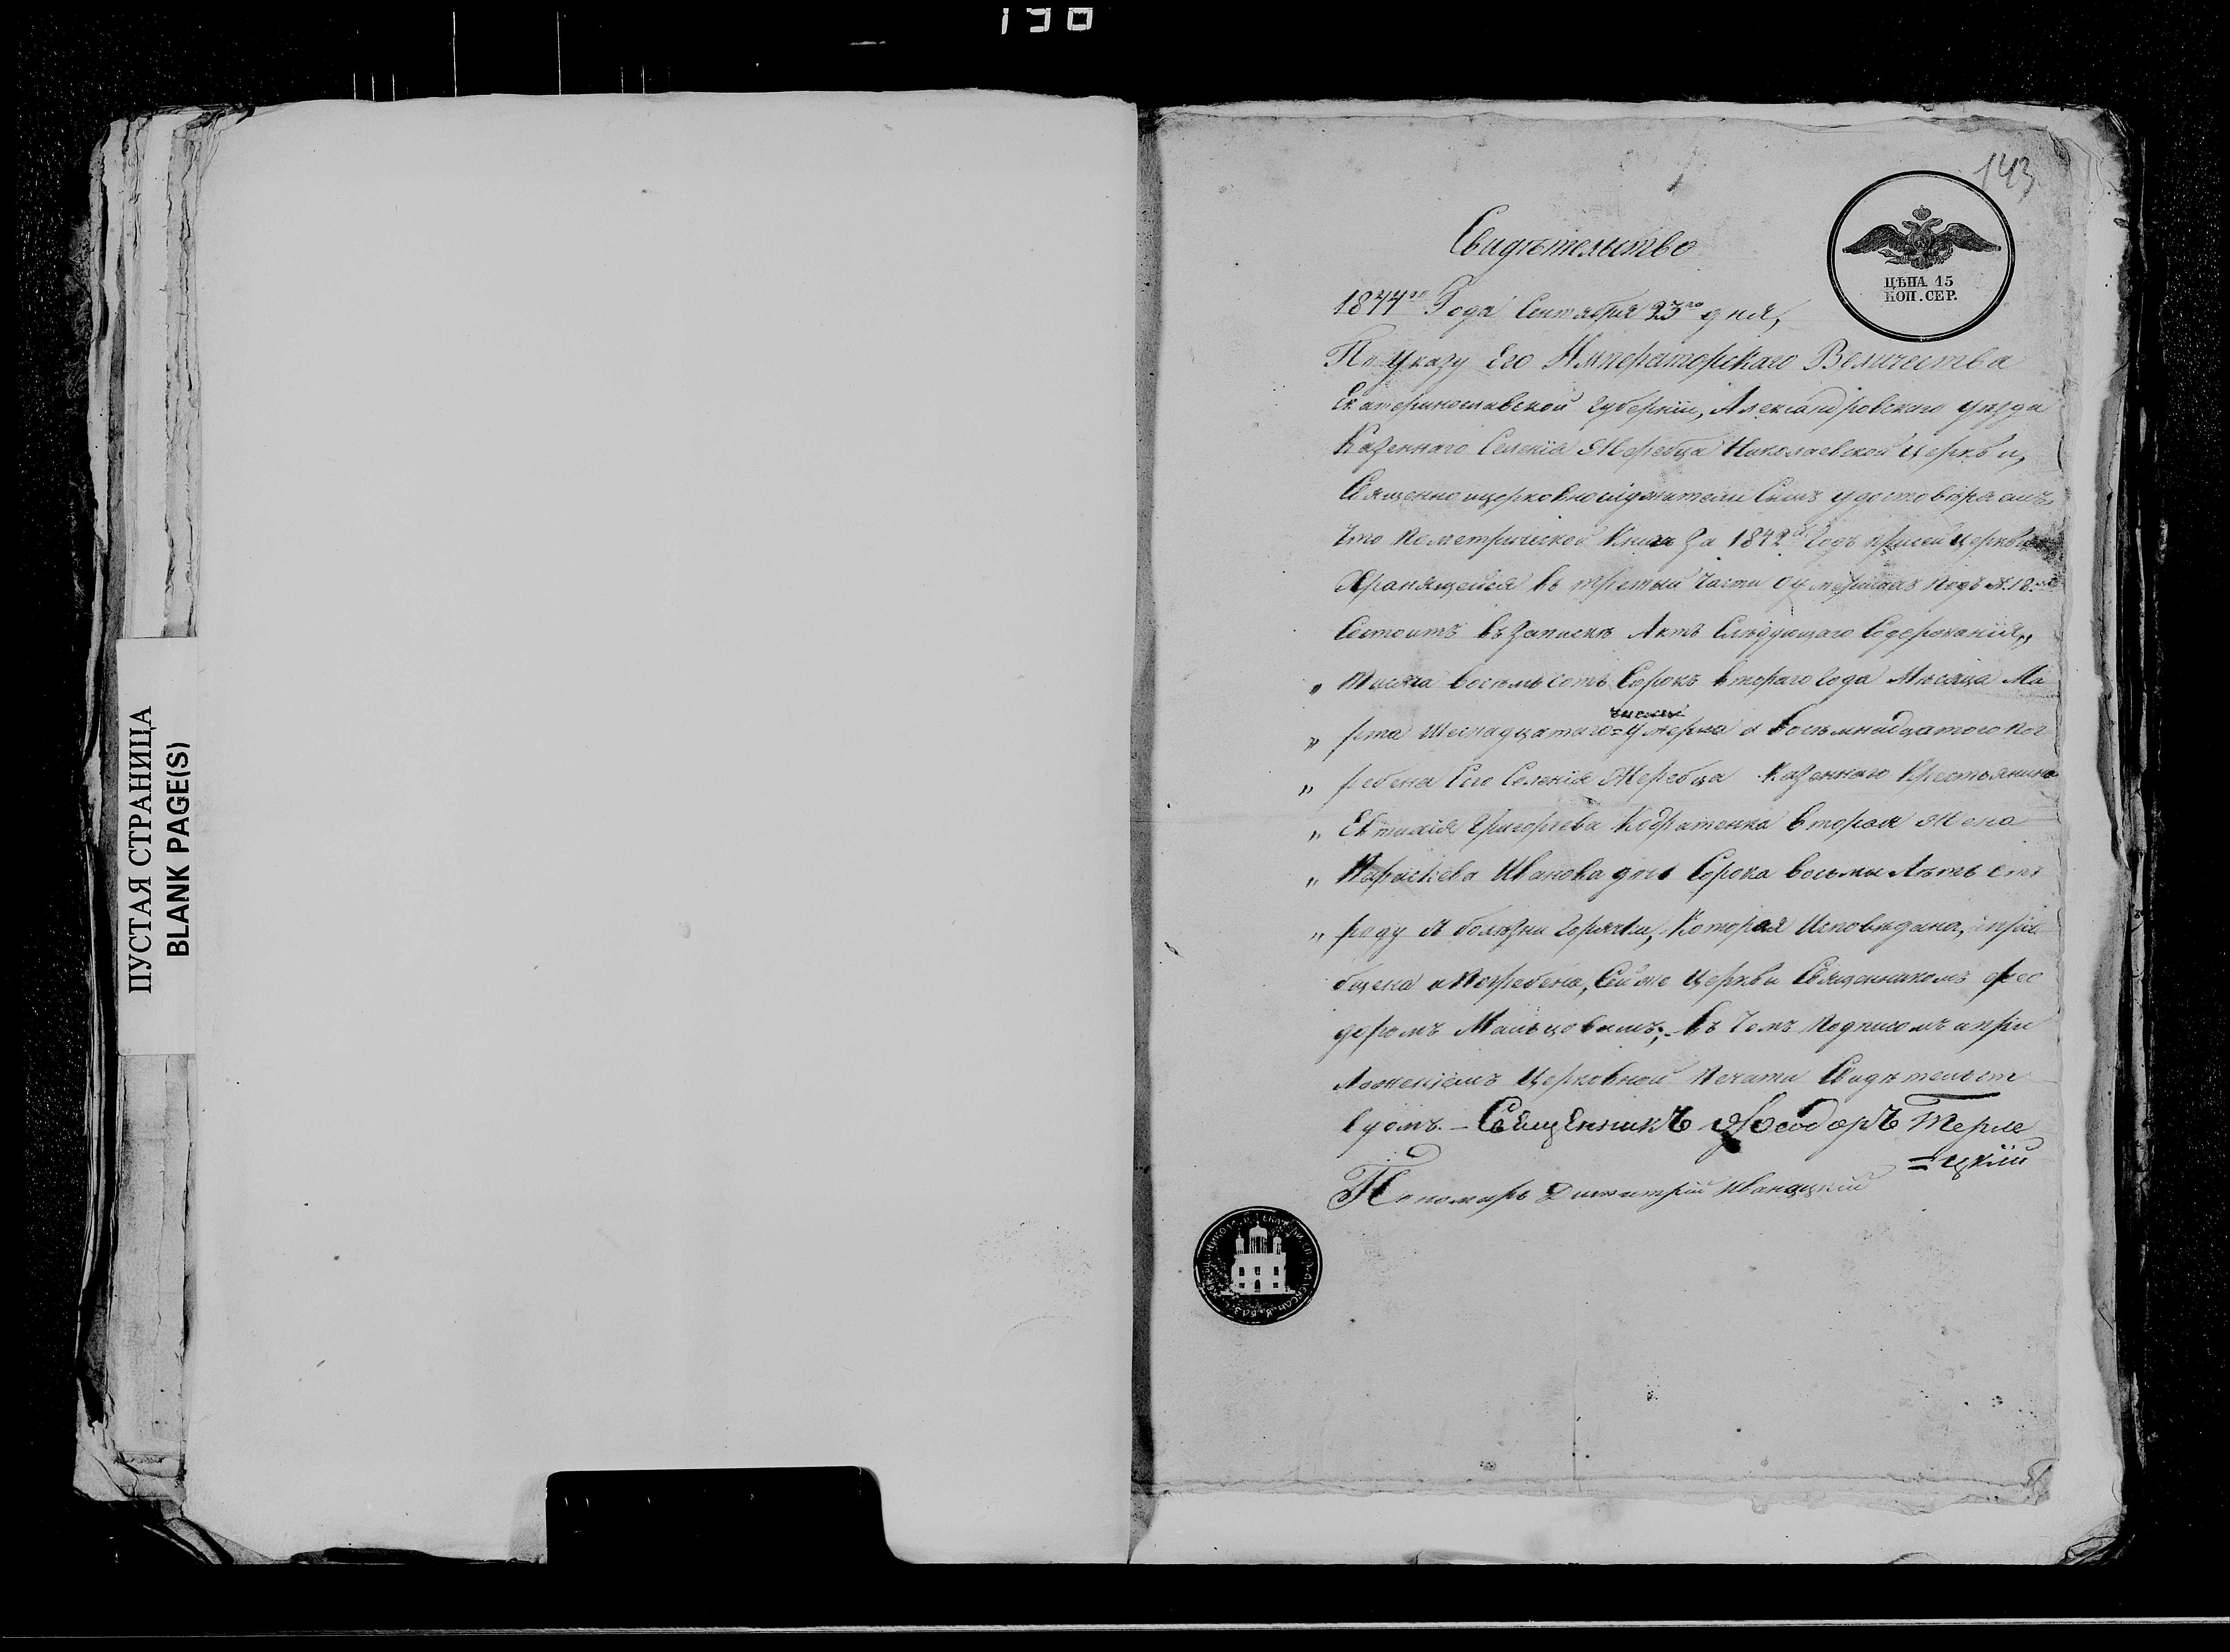 198
ПУСТАЯ СТРАНИЦА
BLANK PAGE(S)
143
ЦѢНА 15
КОП. СЕР.
Свидѣтельство
1844го Года Сентября 23го дня,
По Указу Его Императорскаго Величества
Екатеринославской Губерніи, Александровскаго уѣзда
Казеннаго Селенія Жеребца Николаевской Церкви,
Священноицерковнослужители Симъ удостовѣряемъ
Что Пометрической Книгѣ За 1842й Годъ присей Церкви
Хранящейся въ третьий части оумершихъ подъ №. 18.
Состоитъ въ запискѣ Актъ Слѣдующаго Содержанія,,
„ Тисяча восемьсотъ Сорокъ втораго года Мѣсяца Ма
числа
„ рта Шеснадцатаго = Умерла а восемнадцатого пог
„ ребена Сего Селенія Жеребца Казеннаго Крестьянина
„ Евтихія Григорьева Кодратенка вторая жена
„ Параскева Иванова дочь Сорока восьми Лѣтъ отъ
„ роду болѣзни горячки, Которая Исповѣдана, пріо
бщена и Погребена, Сей же Церкви Священникомъ Фео
доромъ Мальцовимъ; - въ Чемъ подписомъ и при
ложеніемъ Церковной Печати Свидѣтельст
вуемъ. - Священникъ Феодоръ Терле
= цкій
Пономарь Димитрій Иваницкій